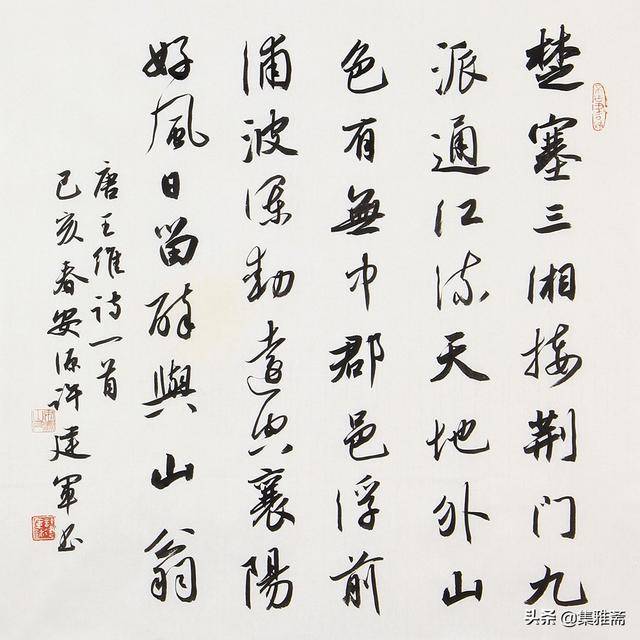 楚塞三湘接荆门九
派通江流天地外山
色有無中郡邑浮前
浦波瀾動遠空襄陽
好風日留醉與山翁
唐王维诗一首
己亥春安源许建軍书
头条 @集雅斋